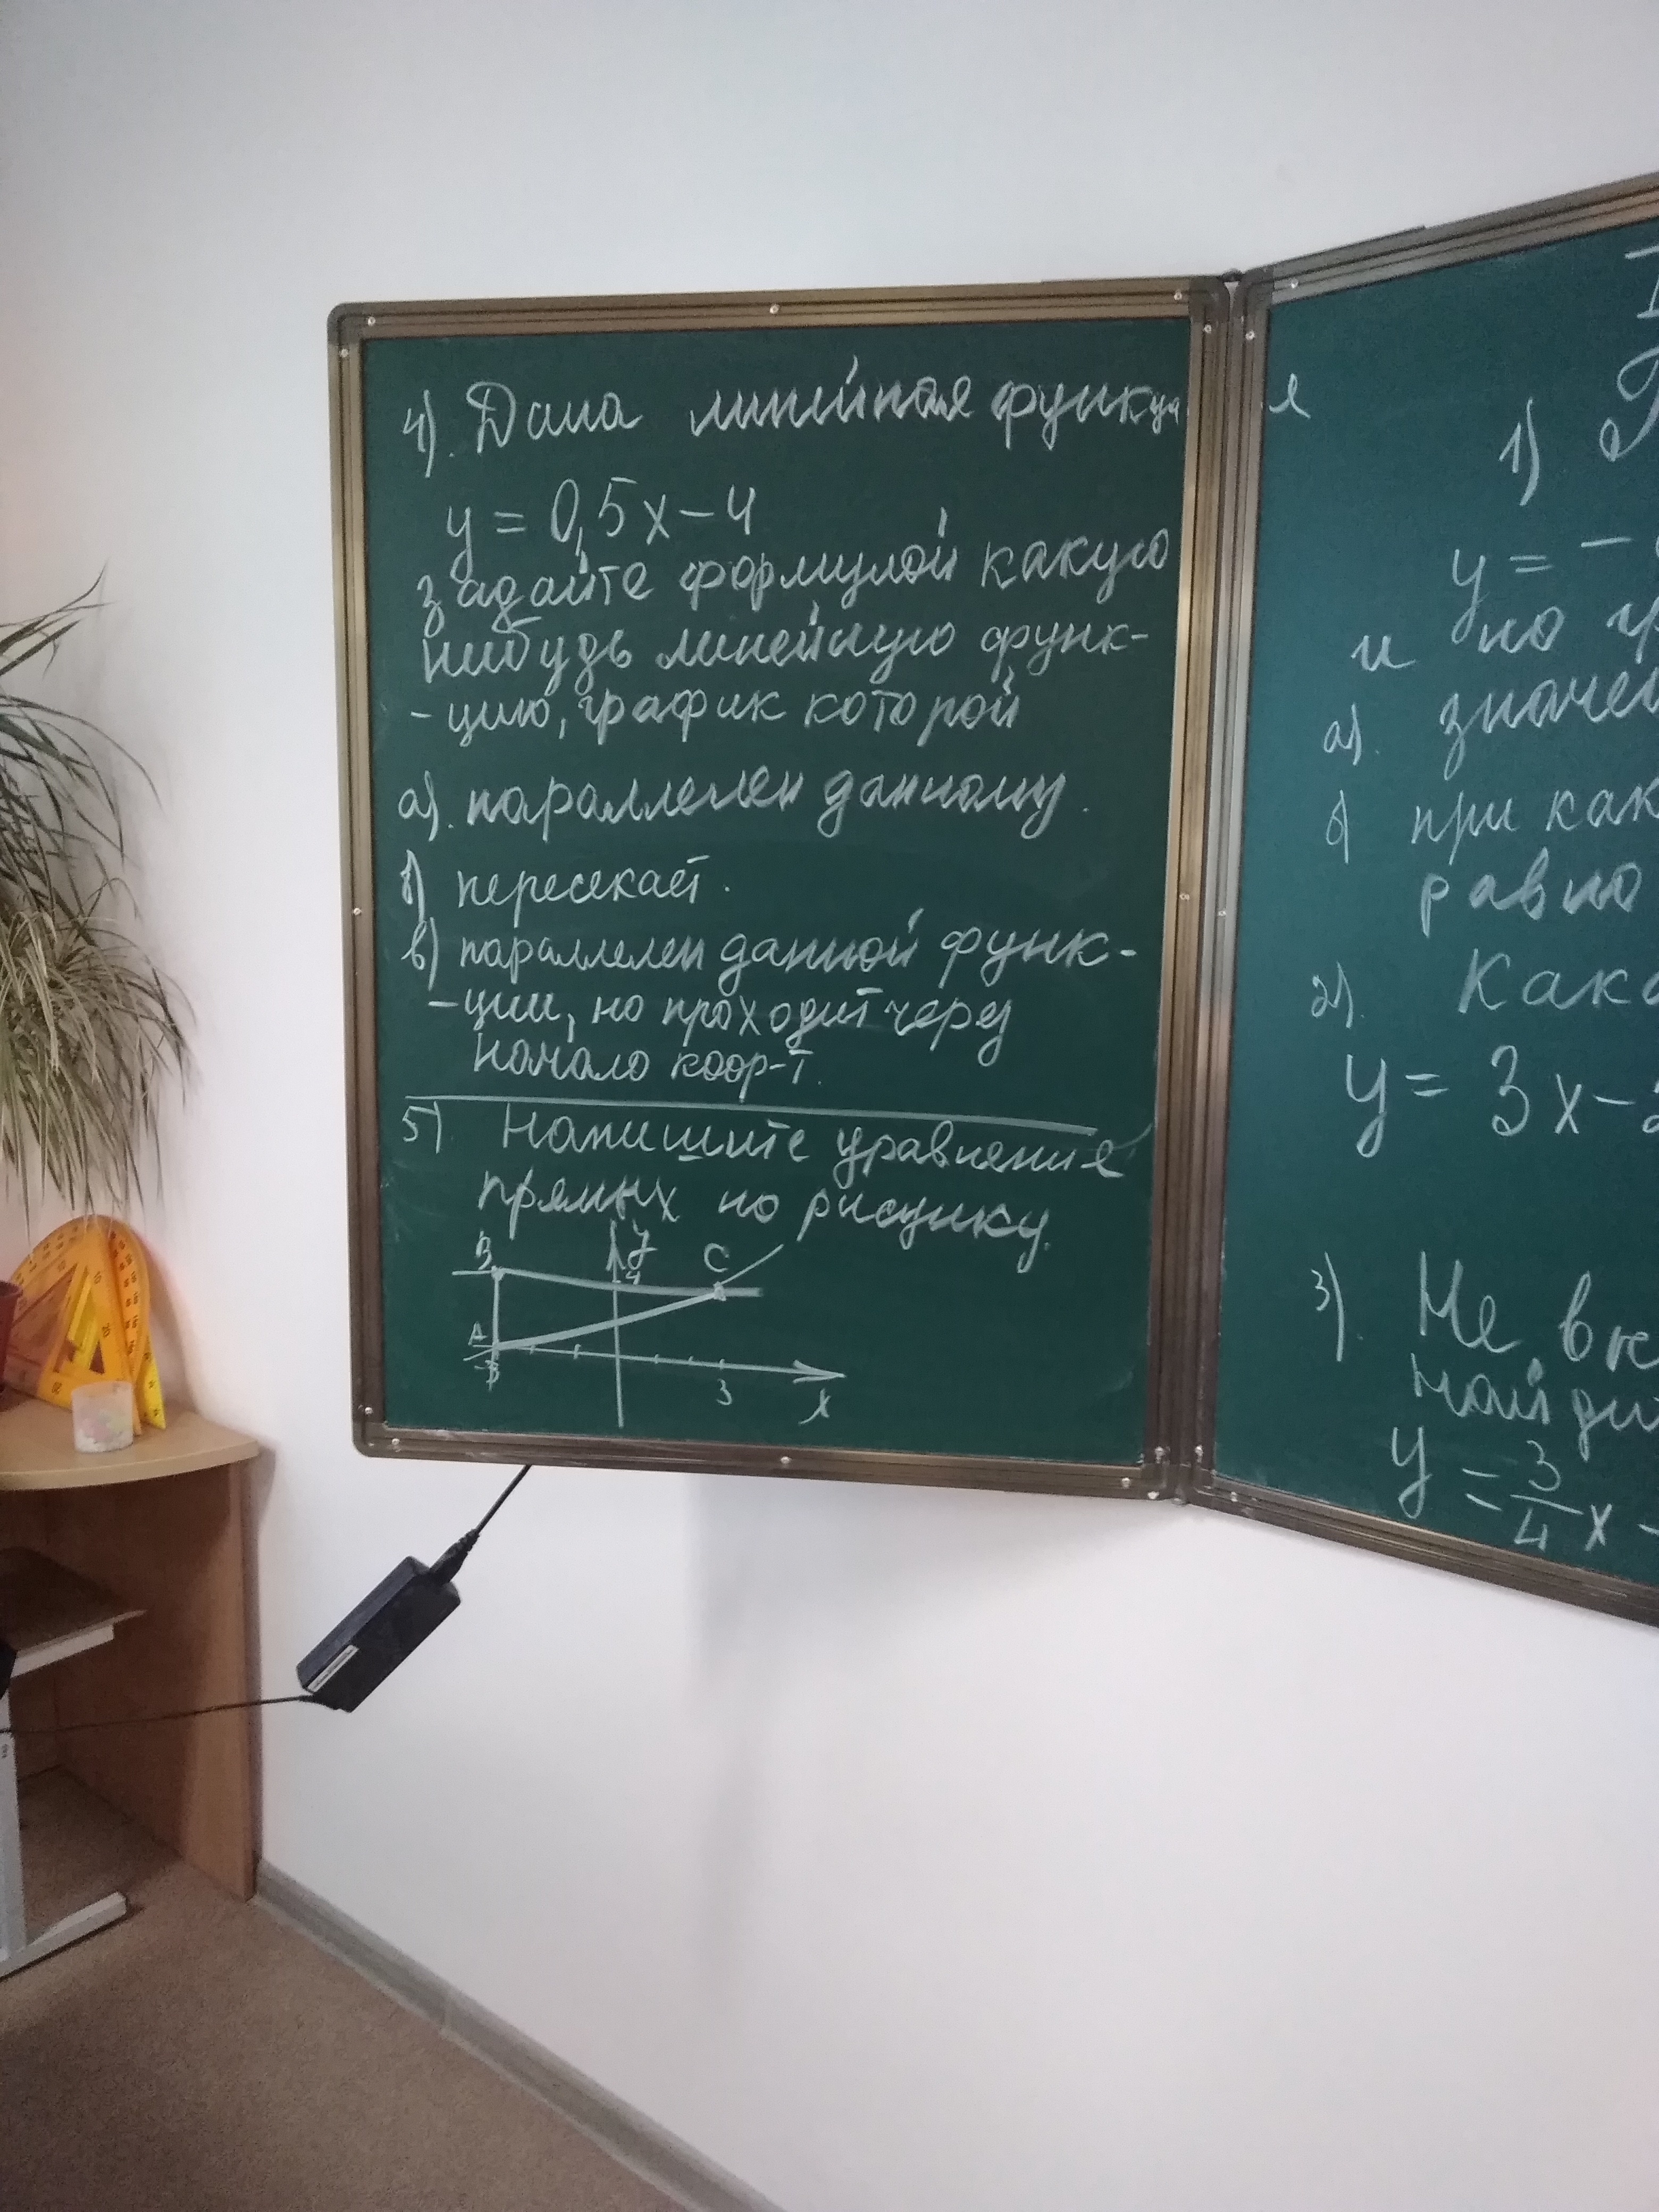 4). Дана линейная функция
y = 0,5x - 4
задайте формулой какую
нибудь линейную функ-
-цию, график которой
а). параллелен данному.
б) пересекает.
в) параллелен данной функ-
-ции, но проходит через
начало коор-т.
5). Напишите уравнения
прямых по рисунку.
B
y
4
C
A
-3
3
x
1)
y = -
и по
а). значен
б) при как
равно
2).
y = 3x -
3). Не
найди
y = 3/4 x -